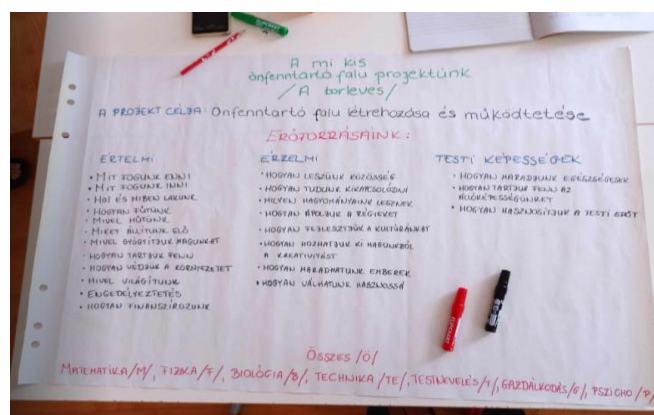 A mi kis
önfenntartó falu projektünk
/A borleves/
A PROJEKT CÉLJA: Önfenntartó falu létrehozása és működtetése
ERŐFORRÁSAINK:
ÉRTELMI
• MIT FOGUNK ENNI
• MIT FOGUNK INNI
• HOL ÉS MIBEN LAKUNK
• HOGYAN FŰTÜNK
• MIVEL HŰTÜNK
• MIKET ÁLLÍTUNK ELŐ
• MIVEL GYÓGYÍTJUK MAGUNKAT
• HOGYAN TARTJUK FENN
• HOGYAN VÉDJÜK A KÖRNYEZETET
• MIVEL VILÁGÍTUNK
• ENGEDÉLYEZTETÉS
• HOGYAN FINANSZÍROZUNK
ÉRZELMI
• HOGYAN LESZÜNK KÖZÖSSÉG
• HOGYAN TUDUNK KIKAPCSOLÓDNI
• MILYEN HAGYOMÁNYAINK LESZNEK
• HOGYAN ÁPOLJUK A RÉGIEKET
• HOGYAN FEJLESZTJÜK A KULTÚRÁNKAT
• HOGYAN HOZHATJUK KI MAGUNKBÓL
A KREATIVITÁST
• HOGYAN MARADHATUNK EMBEREK
• HOGYAN VÁLHATUNK HASZNOSSÁ
TESTI KÉPESSÉGEK
• HOGYAN MARADJUNK EGÉSZSÉGESEK
• HOGYAN TARTJUK FENN AZ
ÁLLÓKÉPESSÉGÜNKET
• HOGYAN HASZNOSÍTJUK A TESTI ERŐT
ÖSSZES /Ö/
MATEMATIKA /M/, FIZIKA /F/, BIOLÓGIA /B/, TECHNIKA /TE/, TESTNEVELÉS /T/, GAZDÁLKODÁS /G/, PSZICHO /P/